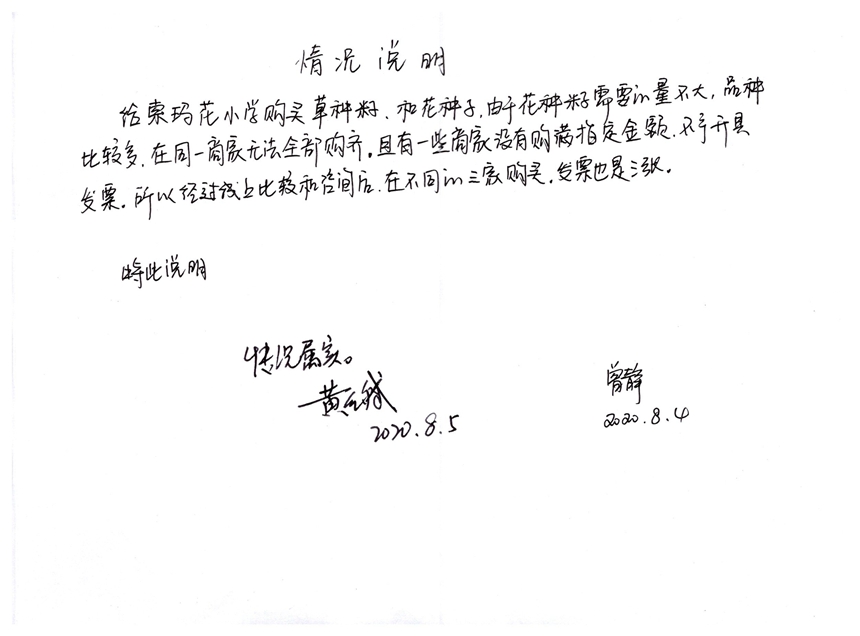 情况说明
给索玛花小学购买草种籽、和花种子,由于花种籽需要的量不大,品种
比较多,在同一商家无法全部购齐。且有一些商家没有购满指定金额,不予开具
发票。所以经过线上比较和咨询后,在不同的三家购买,发票也是三张。
特此说明
情况属实。
曾静
2020.8.4
2020.8.5